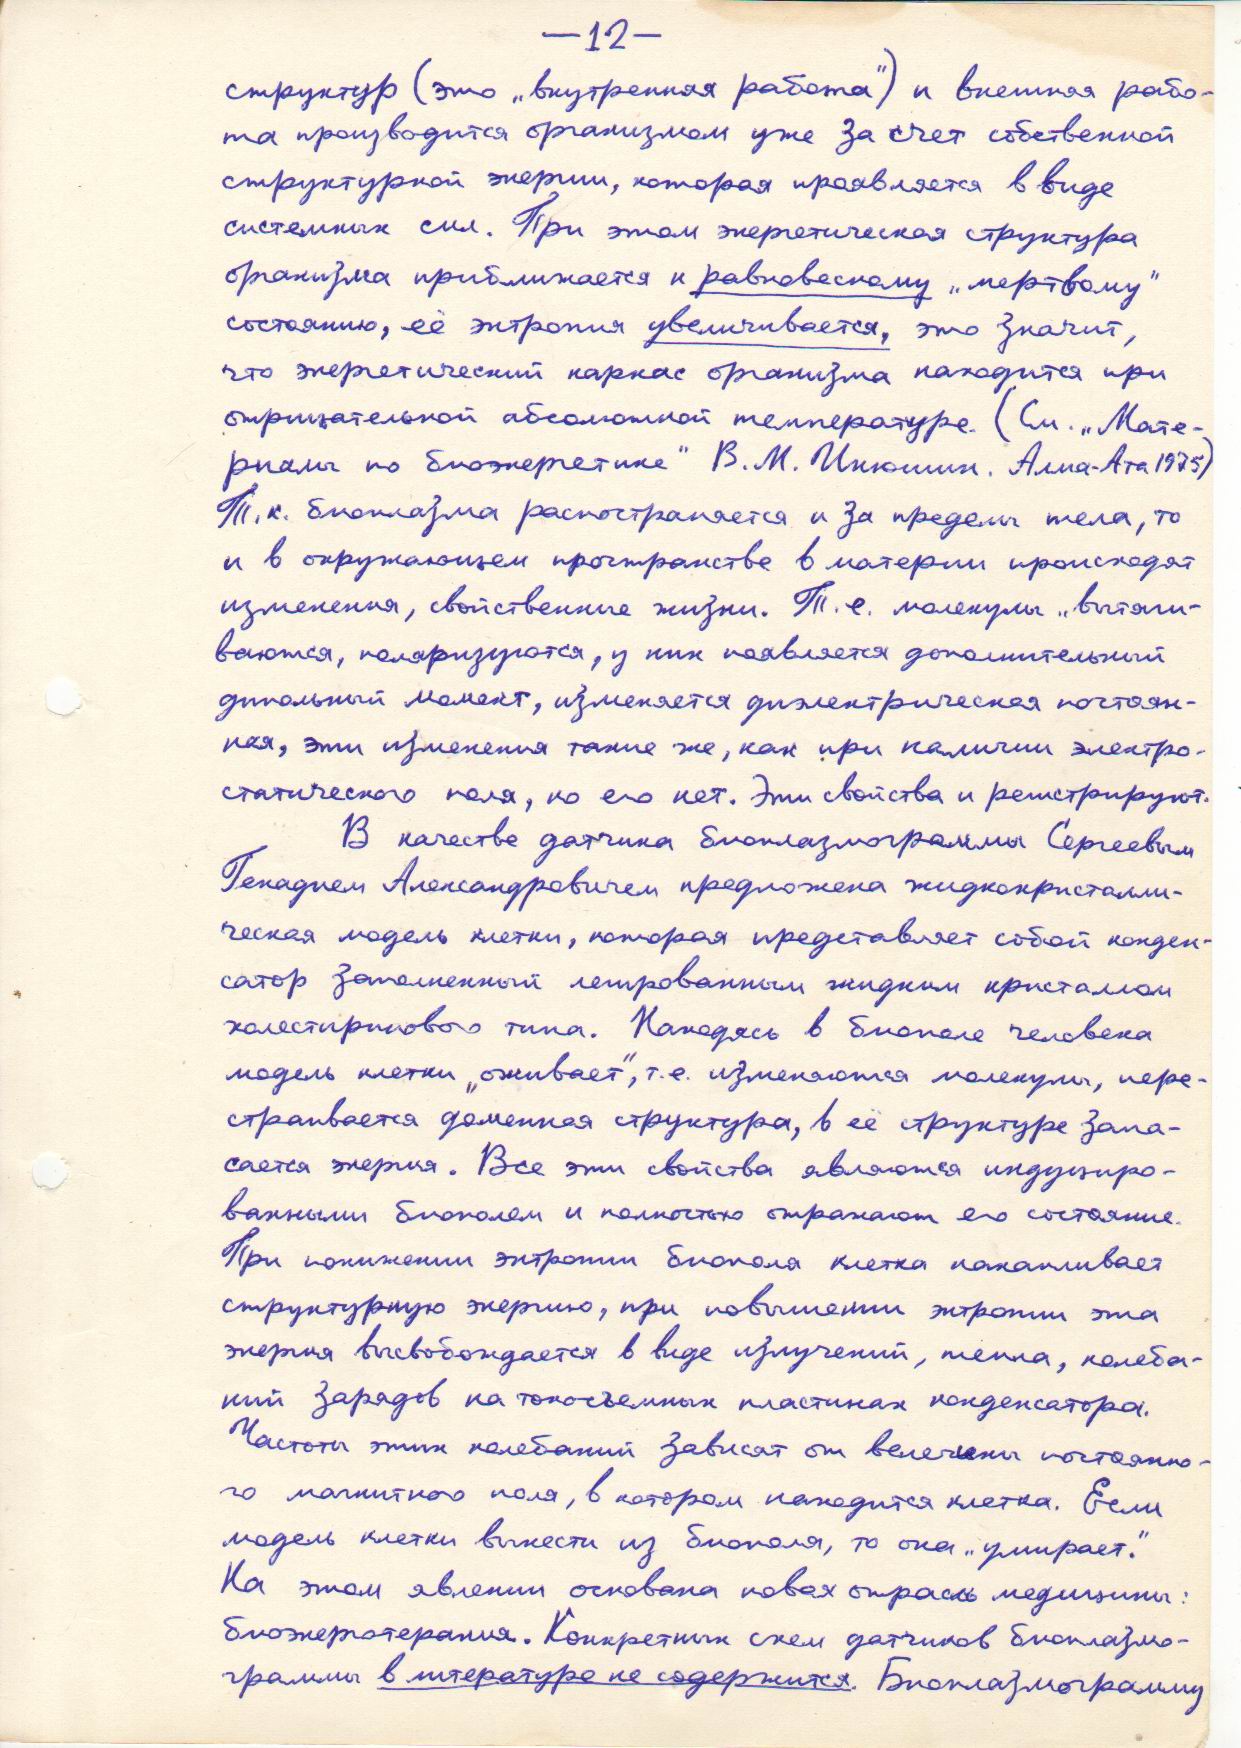 —12—
структур (это „внутренняя работа") и внешняя рабо-
та производится организмом уже за счет собственной
структурной энергии, которая проявляется в виде
системных сил. При этом энергетическая структура
организма приближается к равновесному „мертвому"
состоянию, её энтропия увеличивается, это значит,
что энергетический каркас организма находится при
отрицательной абсолютной температуре. (См. „Мате-
риалы по биоэнергетике" В.М. Инюшин. Алма-Ата 1975)
Т.к. биоплазма распостраняется и за пределы тела, то
и в окружающем пространстве в материи происходят
изменения, свойственные жизни. Т.е. молекулы „вытяги-
ваются, поляризуются, у них появляется дополнительный
дипольный момент, изменяется диэлектрическая постоян-
ная, эти изменения такие же, как при наличии электро-
статического поля, но его нет. Эти свойства и регистрируют.
В качестве датчика биоплазмограммы Сергеевым
Генадием Александровичем предложена жидкокристалли-
ческая модель клетки, которая представляет собой конден-
сатор заполненный легированным жидким кристаллом
холестиринового типа. Находясь в биополе человека
модель клетки „оживает", т.е. изменяются молекулы, пере-
страивается доменная структура, в её структуре запа-
сается энергия. Все эти свойства являются индуциро-
ванными биополем и полностью отражают его состояние.
При понижении энтропии биополя клетка накапливает
структурную энергию, при повышении энтропии эта
энергия высвобождается в виде излучений, тепла, колеба-
ний зарядов на токосъемных пластинах конденсатора.
Частоты этих колебаний зависят от велечины постоянно-
го магнитного поля, в котором находится клетка. Если
модель клетки вынести из биополя, то она „умирает."
На этом явлении основана новая отрасль медицины:
биоэнерготерапия. Конкретных схем датчиков биоплазмо-
граммы в литературе не содержится. Биоплазмограмму